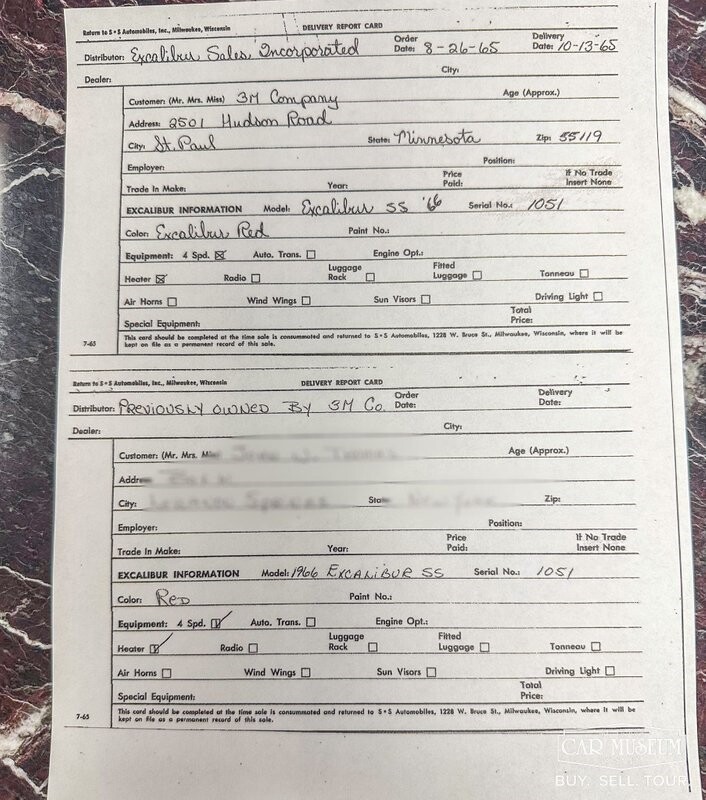 Return to S • S Automobiles, Inc., Milwaukee, Wisconsin DELIVERY REPORT CARD
Distributor: Excalibur Sales Incorporated Order Date: 8-26-65 Delivery Date: 10-13-65
Dealer: City:
Customer: (Mr. Mrs. Miss) 3M Company Age (Approx.)
Address: 2501 Hudson Road
City: St. Paul State: Minnesota Zip: 55119
Employer: Position:
Trade In Make: Year: Price Paid: If No Trade Insert None
EXCALIBUR INFORMATION Model: Excalibur SS '66 Serial No.: 1051
Color: Excalibur Red Paint No.:
Equipment: 4 Spd. ☒ Auto. Trans. ☐ Engine Opt.:
Heater ☒ Radio ☐ Luggage Rack ☐ Fitted Luggage ☐ Tonneau ☐
Air Horns ☐ Wind Wings ☐ Sun Visors ☐ Driving Light ☐
Special Equipment: Total Price:
7-65 This card should be completed at the time sale is consummated and returned to S • S Automobiles, 1228 W. Bruce St., Milwaukee, Wisconsin, where it will be
kept on file as a permanent record of this sale.
Return to S • S Automobiles, Inc., Milwaukee, Wisconsin DELIVERY REPORT CARD
Distributor: PREVIOUSLY OWNED BY 3M Co. Order Date: Delivery Date:
Dealer: City:
Customer: (Mr. Mrs. Age (Approx.)
City: Zip:
Employer: Position:
Trade In Make: Year: Price Paid: If No Trade Insert None
EXCALIBUR INFORMATION Model: 1966 EXCALIBUR SS Serial No.: 1051
Color: RED Paint No.:
Equipment: 4 Spd. ☑ Auto. Trans. ☐ Engine Opt.:
Heater ☑ Radio ☐ Luggage Rack ☐ Fitted Luggage ☐ Tonneau ☐
Air Horns ☐ Wind Wings ☐ Sun Visors ☐ Driving Light ☐
Special Equipment: Total Price:
7-65 This card should be completed at the time sale is consummated and returned to S • S Automobiles, 1228 W. Bruce St., Milwaukee, Wisconsin, where it will be
kept on file as a permanent record of this sale.
CAR MUSEUM
BUY. SELL. TOUR.